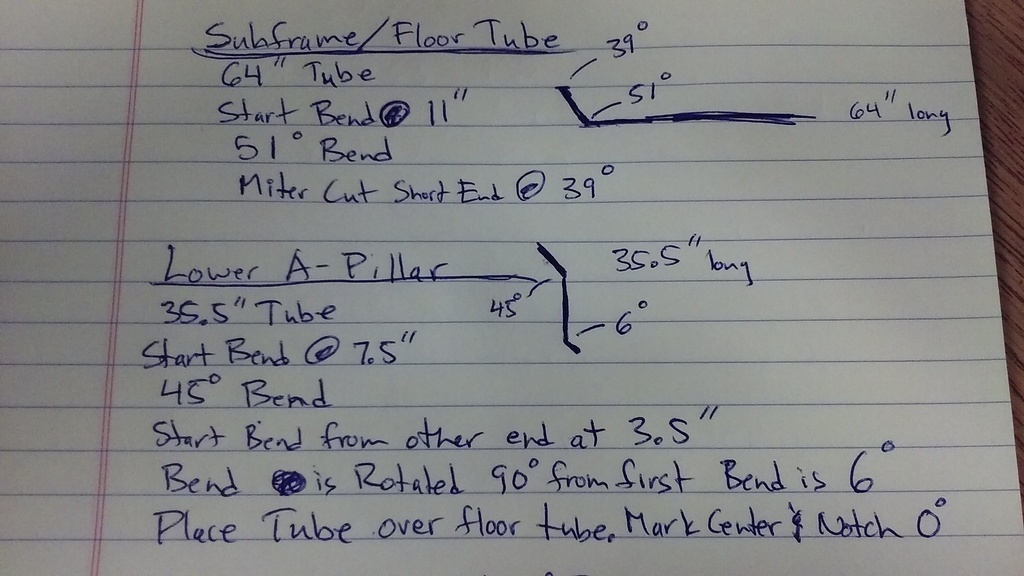 Subframe/Floor Tube
39°
64" Tube
51°
Start Bend @ 11"
64" long
51° Bend
Miter Cut Short End @ 39°
Lower A-Pillar
35.5" long
45°
6°
35.5" Tube
Start Bend @ 7.5"
45° Bend
Start Bend from other end at 3.5"
Bend is Rotated 90° from first Bend is 6°
Place Tube over floor tube. Mark Center & Notch 0°